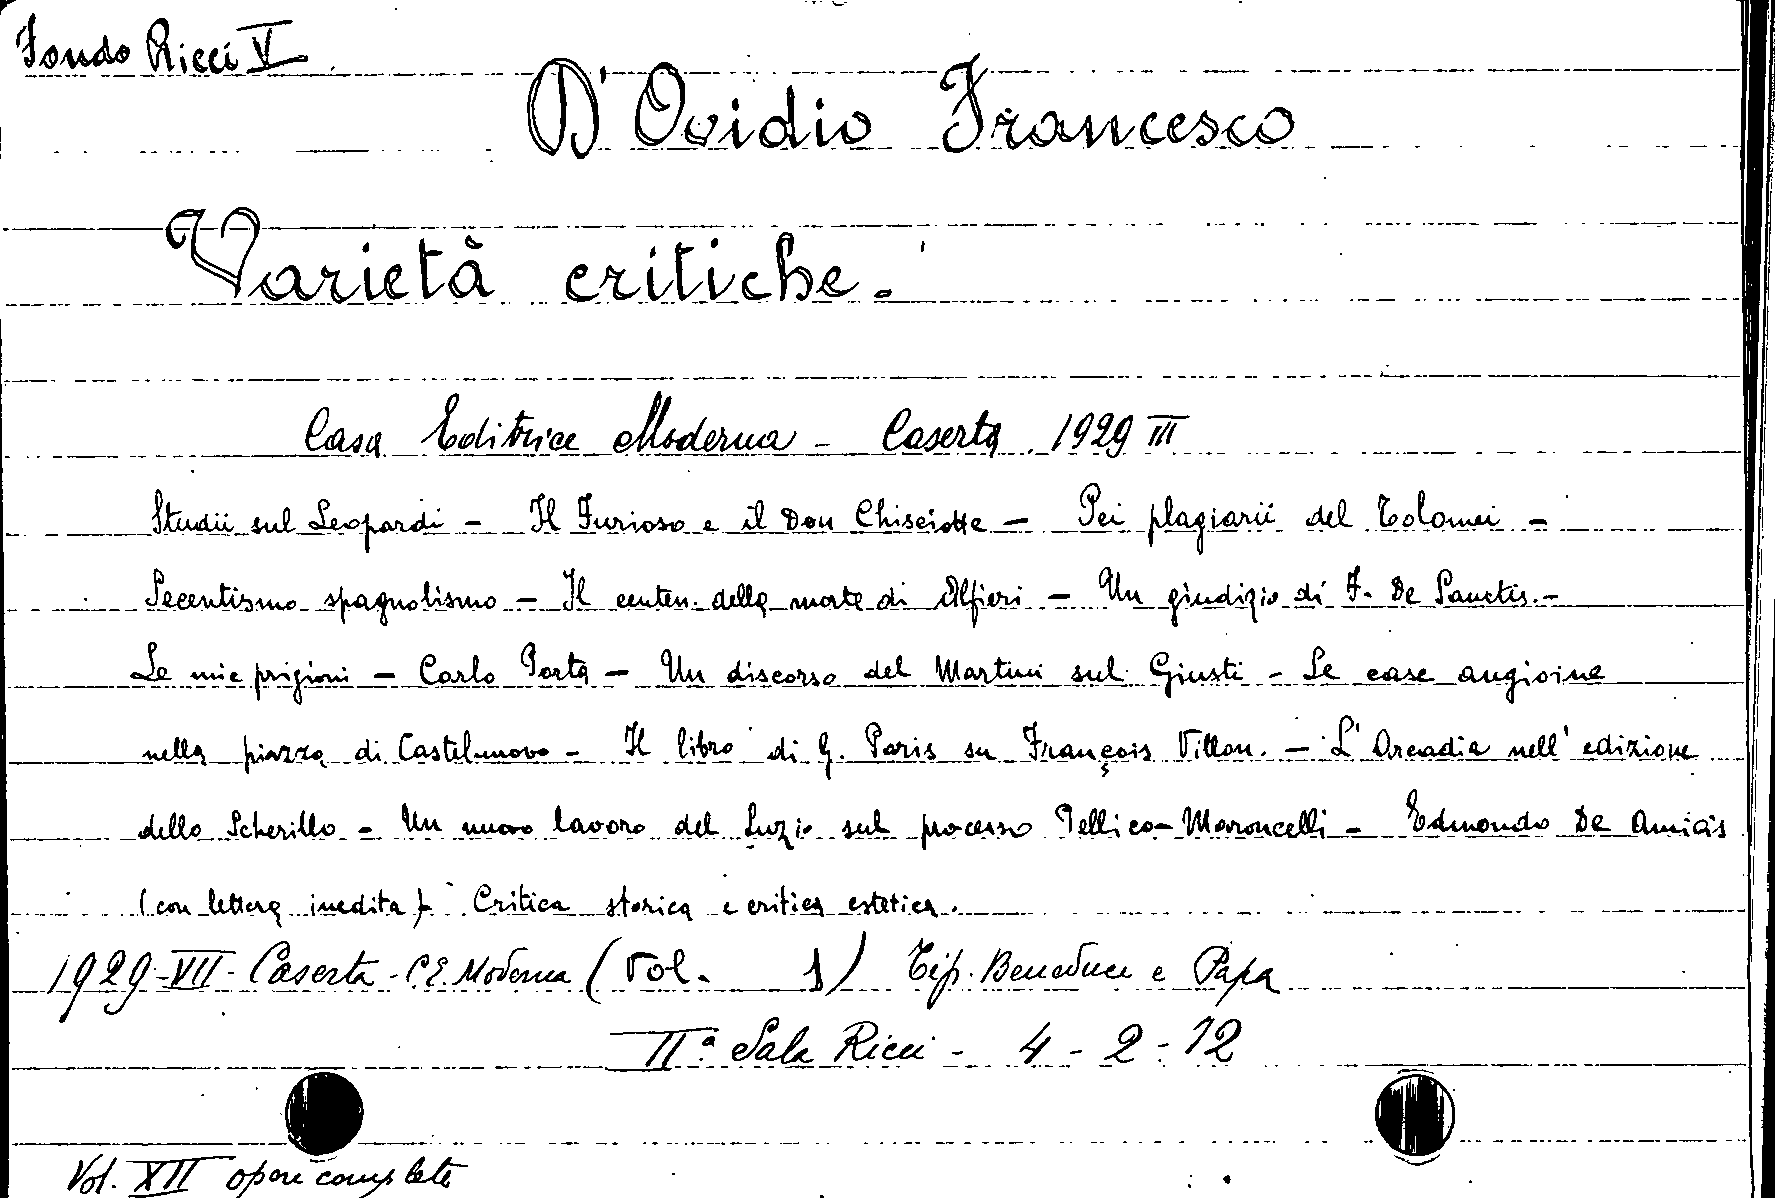 Fondo Ricci V
D'Ovidio Francesco
Varietà critiche.
Casa Editrice Moderna - Caserta 1929 III
Studii sul Leopardi - Il Furioso e il Don Chisciotte - Pei plagiarii del Tolomei -
Secentismo spagnolismo - Il centen. della morte di Alfieri - Un giudizio di F. De Sanctis. -
Le mie prigioni - Carlo Porta - Un discorso del Martini sul Giusti - Le case angioine
nella piazza di Castelnuovo - Il libro di G. Paris su François Villon. - L'Arcadia nell'edizione
dello Scherillo - Un nuovo lavoro del Luzio sul processo Pellico-Maroncelli - Edmondo De Amicis
(con lettera inedita) - Critica storica e critica estetica.
1929-VII-Caserta - C.E. Moderna (Vol. 1) Tip. Beneduce e Papa
IIª Sala Ricci - 4 - 2 - 12
Vol. XII opere complete